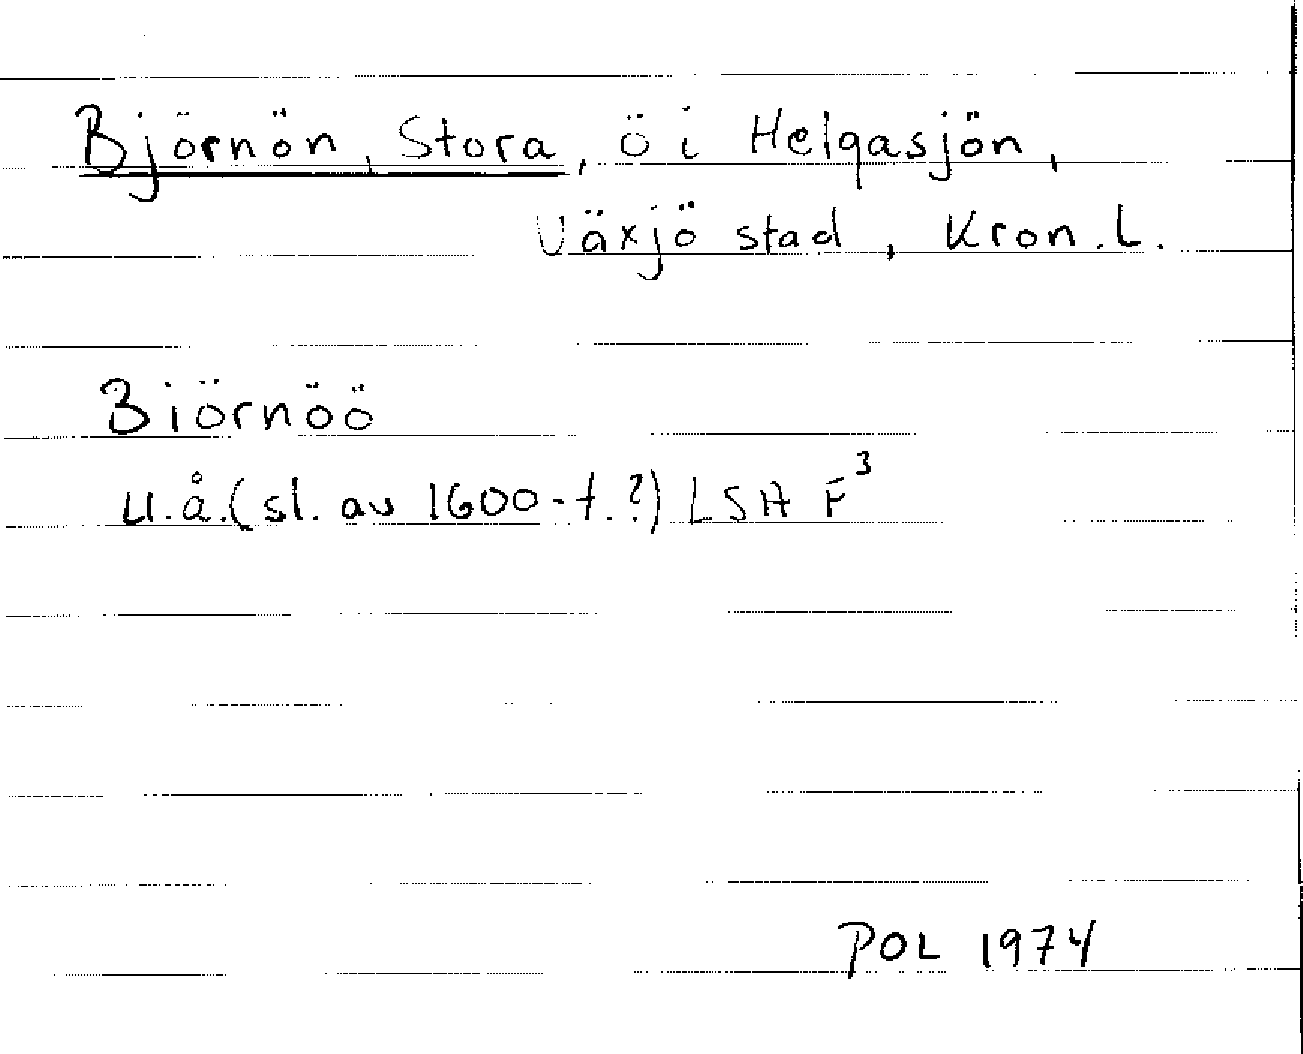 Björnön, Stora, ö i Helgasjön,
Växjö stad, Kron.L.
Biörnöö
u.å.(sl. av 1600-t.?) LSA F³
POL 1974